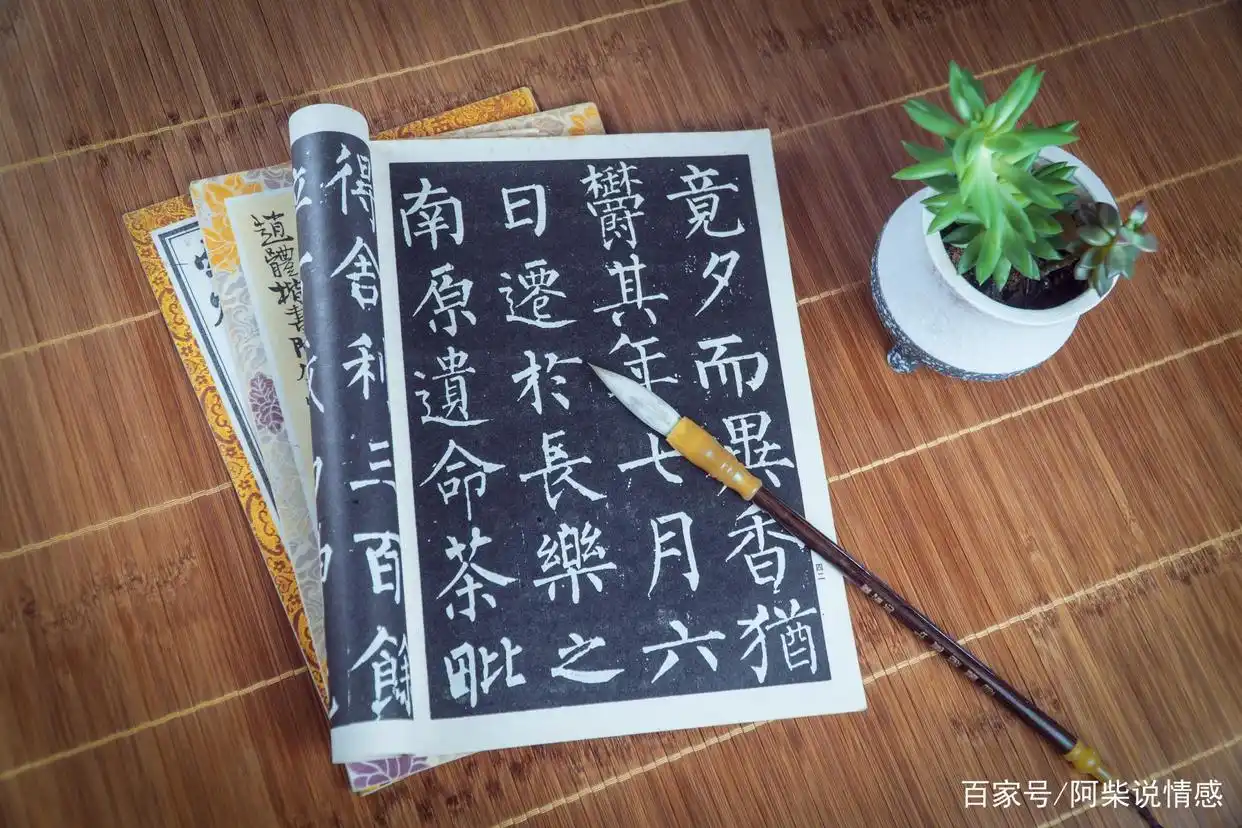 竟夕而異香猶
鬱其年七月六
日遷於長樂之
南原遺命茶毗
得舍利三百餘
趙體楷書
四二
百家号/阿柴说情感